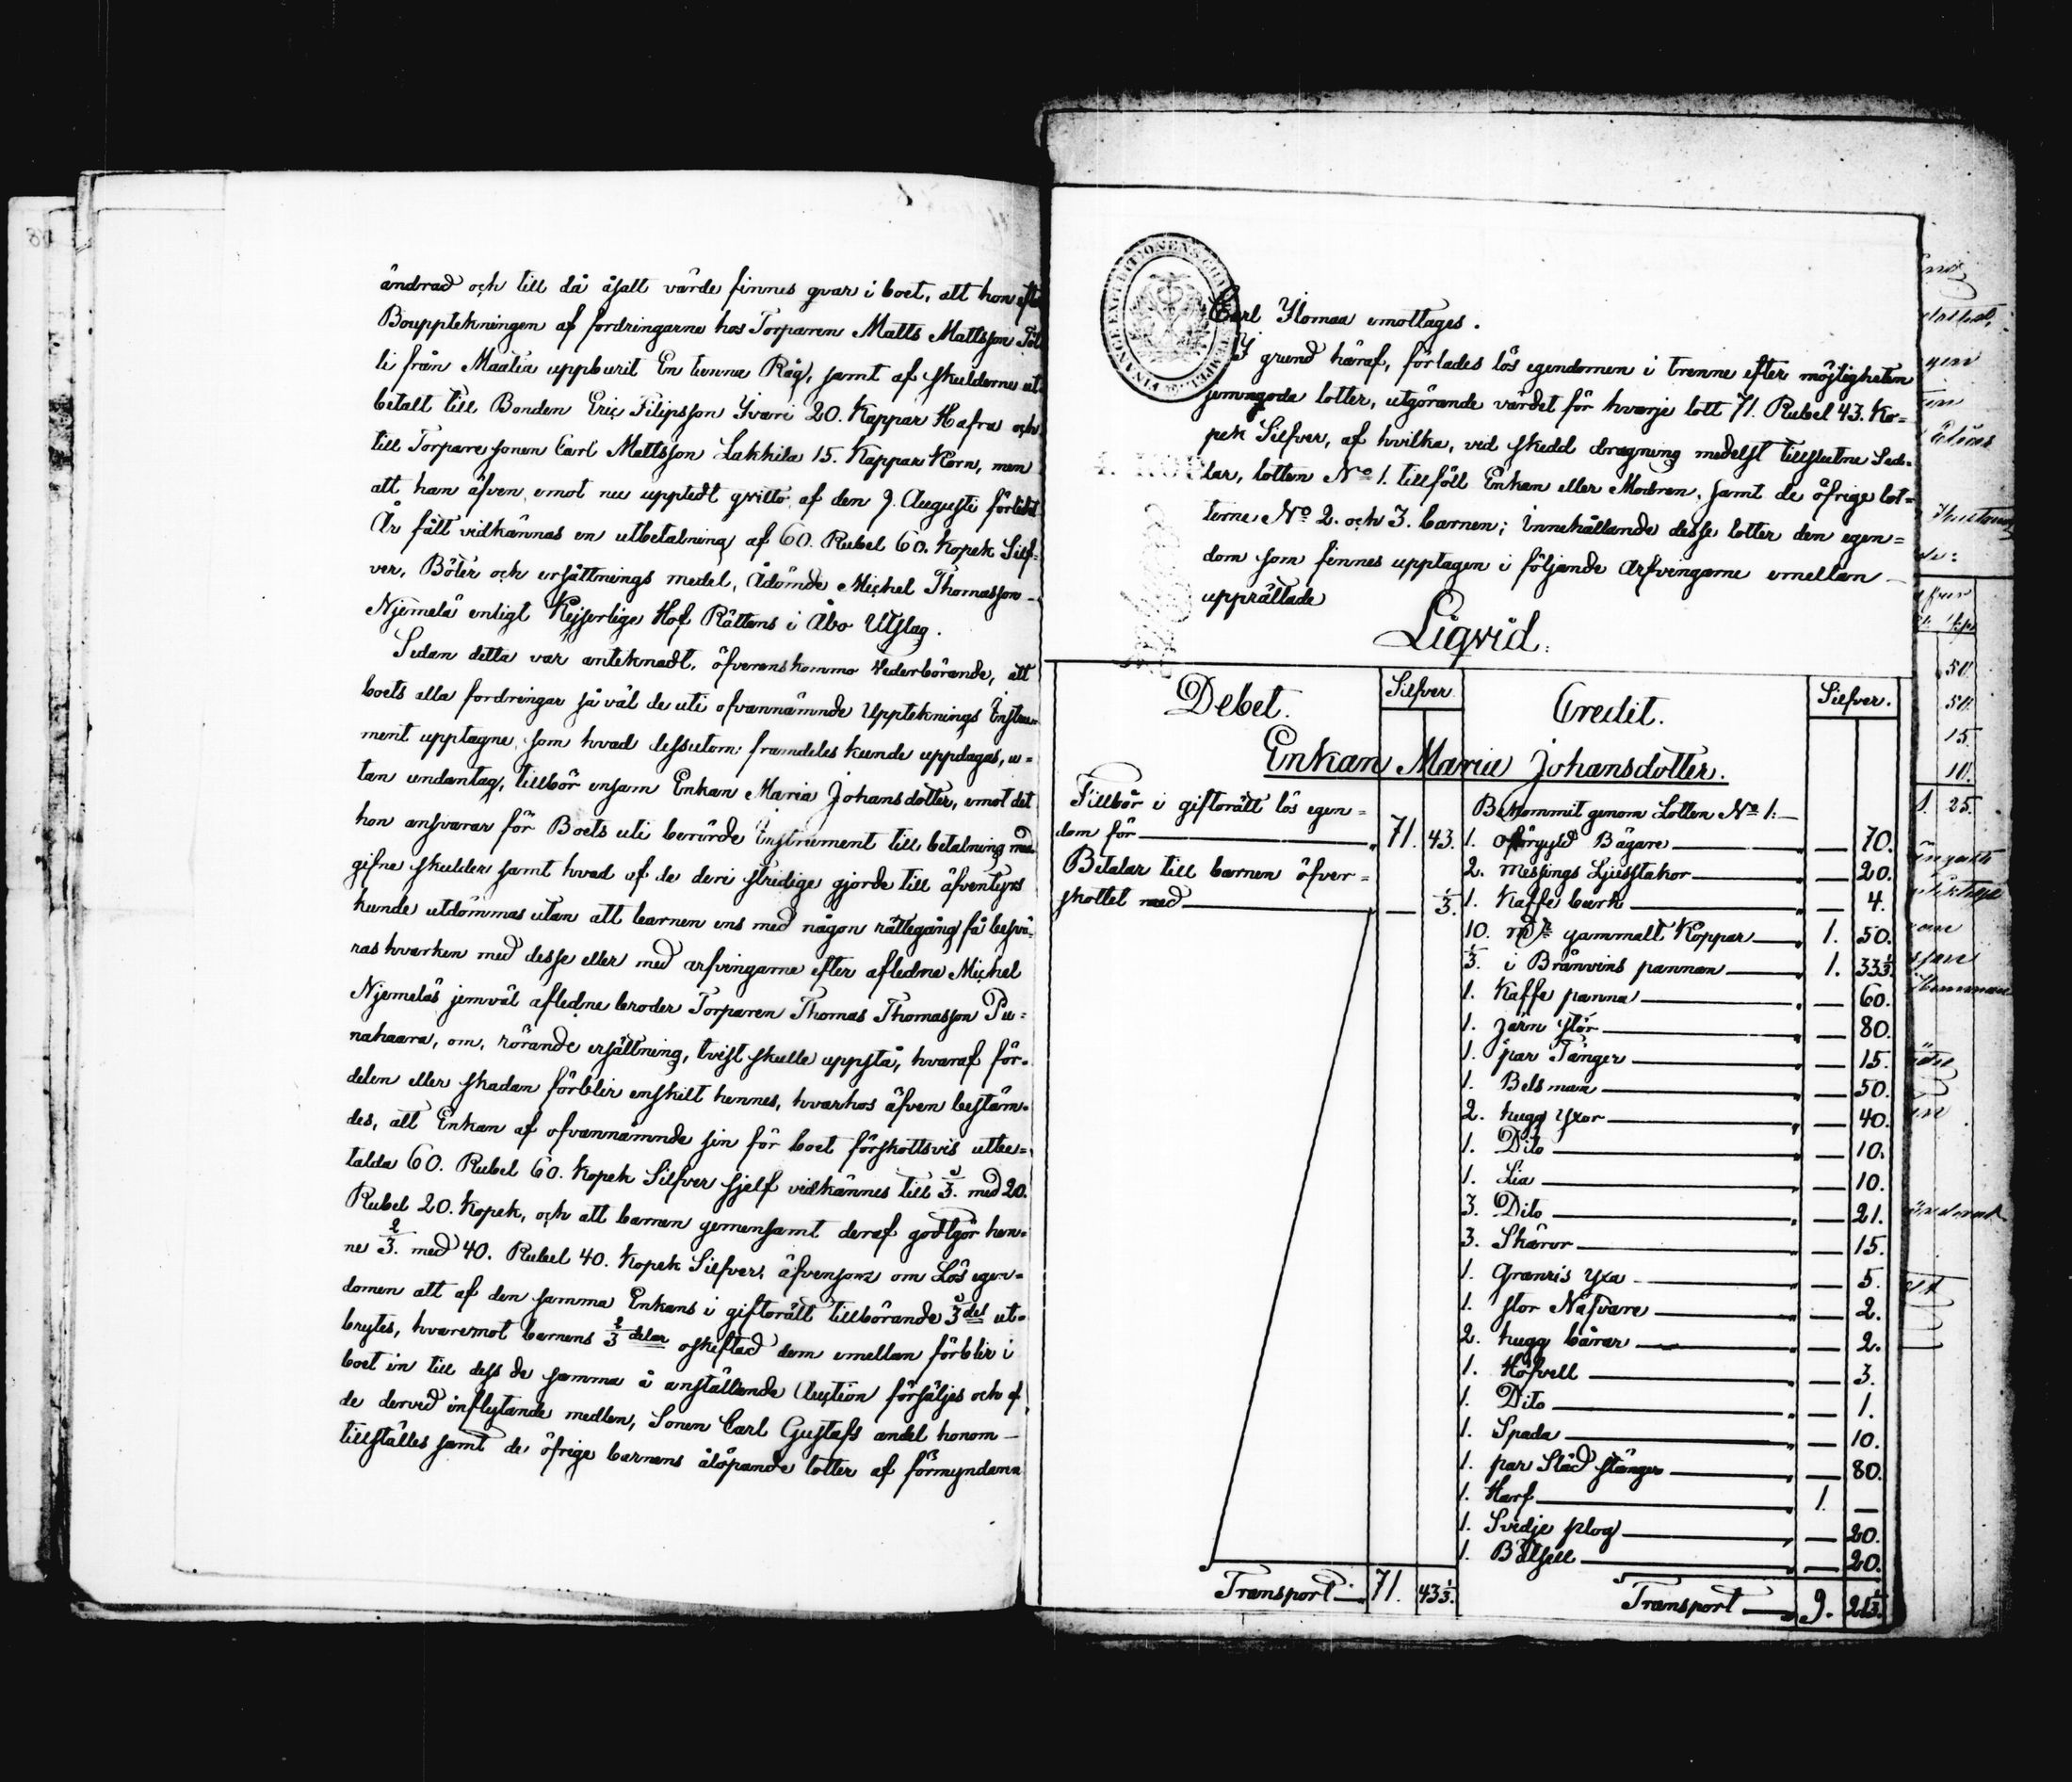 ändrad och till då åsatt värde finnes qvar i boet, att hon efter
Boupptekningen af fordringarne hos Torparen Matts Mattsson
li från Maalia uppburit En tunna Råg, samt af skulderne ut
betalt till Bonden Eric Filipsson Yvari 20. Kappar Hafra och
till Torpare sonen Carl Mattsson Lakkila 15. Kappar Korn, men
att han äfven emot nu upptedt qvitto af den 9. Augusti förledet
År fått vidkännas en utbetalning af 60. Rubel 60. Kopek Silf=
ver, Böter och ersättnings medel, Ådömde Michel Thomasson
Njemelä enligt Kejserlige Hof Rättens i Åbo Utslag.
Sedan detta var anteknadt, öfverenskommo Vederbörande, att
boets alla fordringar så väl de uti ofvannämnde Uppteknings Instru=
ment upptagne, som hvad dessutom framdeles kunde uppdagas, u=
tan undantag, tillhör ensam Enkan Maria Johansdotter, emot det
hon ansvarar för Boets uti berörde Instrument till betalning med
gifne skulder samt hvad af de deri stridige gjorde till äfventyrs
kunde utdömmas utan att barnen ens med någon rättegång få besvä=
ras hvarken med desse eller med arfvingarne efter afledne Michel
Njemeläs jemväl afledne broder Torparen Thomas Thomasson Pu=
nahaara, om, rörande ersättning, tvist skulle uppstå, hvaraf för=
delen eller skadan förblir enskilt hennes, hvarhos äfven bestäm=
des, att Enkan af ofvannämnde sin för boet förskottsvis utbe=
talda 60. Rubel 60. Kopek Silfver sjelf vidkännes till 1/3. med 20.
Rubel 20. Kopek, och att barnen gemensamt deraf godtgör hen=
ne 2/3. med 40. Rubel 40. Kopek Silfver, äfvensom om Lös egen=
domen att af den samma Enkans i giftorätt tillhörande 1/3 del ut=
brytes, hvaremot barnens 2/3 delar oskiftad dem emellan förblir i
boet in till dess de samma å anställande Auction försäljes och af
de dervid inflytande medlen, Sonen Carl Gustafs andel honom
tillställes samt de öfrige barnens ålöpande lotter af förmyndaren
Carl Ylomaa emottages.
I grund häraf, förlades lös egendomen i trenne efter möjligheten
jemngoda lotter, utgörande värdet för hvarje lott 71. Rubel 43. Ko=
pek Silfver, af hvilka, vid skedd dragning medelst tillslutne Sed=
lar, lotten No 1. tillföll Enkan eller Modren, samt de öfrige lot=
terne No 2. och 3. barnen; innehållande desse lotter den egen=
dom som finnes upptagen i följande Arfvingarne emellan
upprättade
Liqvid.
Debet. Silfver. Credit. Silfver.
Enkan Maria Johansdotter.
Tillhör i giftorätt lös egen=
dom för 71. 43.
Betalar till barnen öfver=
skottet med — 1/3.
Transport 71. 43 1/3.
Bekommit genom Lotten No 1:
1. oförgyld Bägare — 70.
2. Messings Ljusstakar — 20.
1. Kaffe bark — 4.
10. gammalt Koppar 1. 50.
1/3. i Brånvins pannan 1. 33 1/3.
1. Kaffe panna — 60.
1. Järn stör — 80.
1. par Tänger — 15.
1. Betsman — 50.
2. hugg yxor — 40.
1. Dito — 10.
1. Lia — 10.
3. Dito — 21.
3. Skäror — 15.
1. Granris yxa — 5.
1. stor Nafvare — 2.
2. hugg bårar — 2.
1. Höfvell — 3.
1. Dito — 1.
1. Spada — 10.
1. par Släd stänger — 80.
1. Harf 1. —
1. Svedje plog — 20.
1. Båtsell — 20.
Transport 9. 21 1/3.